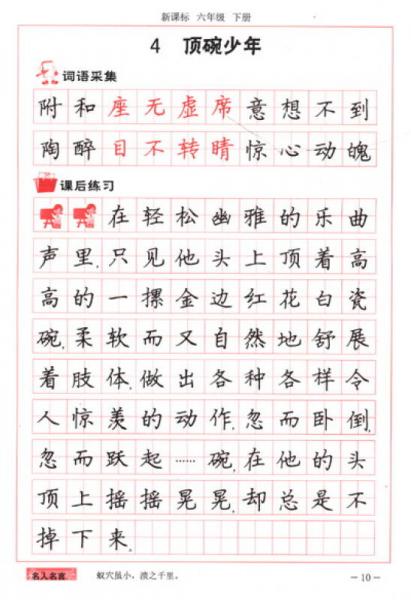 新课标 六年级 下册
4 顶碗少年
词语采集
附和座无虚席意想不到
陶醉目不转睛惊心动魄
课后练习
在轻松幽雅的乐曲
声里,只见他头上顶着高
高的一摞金边红花白瓷
碗,柔软而又自然地舒展
着肢体,做出各种各样令
人惊羡的动作,忽而卧倒,
忽而跃起……碗,在他的头
顶上摇摇晃晃,却总是不
掉下来.
名人名言 蚁穴虽小,溃之千里。
－10－